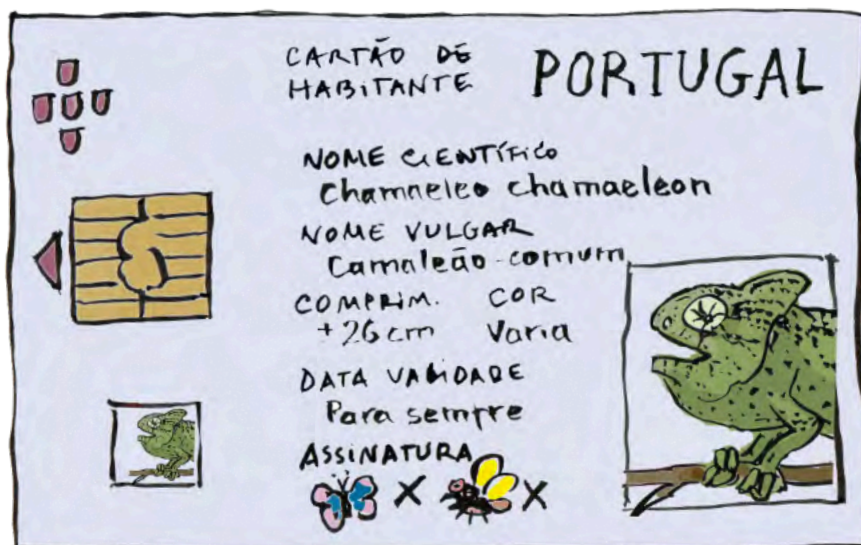 CARTÃO DE
HABITANTE
PORTUGAL
NOME CIENTÍFICO
Chamaeleo chamaeleon
NOME VULGAR
Camaleão-comum
COMPRIM. COR
+26cm Varia
DATA VALIDADE
Para sempre
ASSINATURA
X X